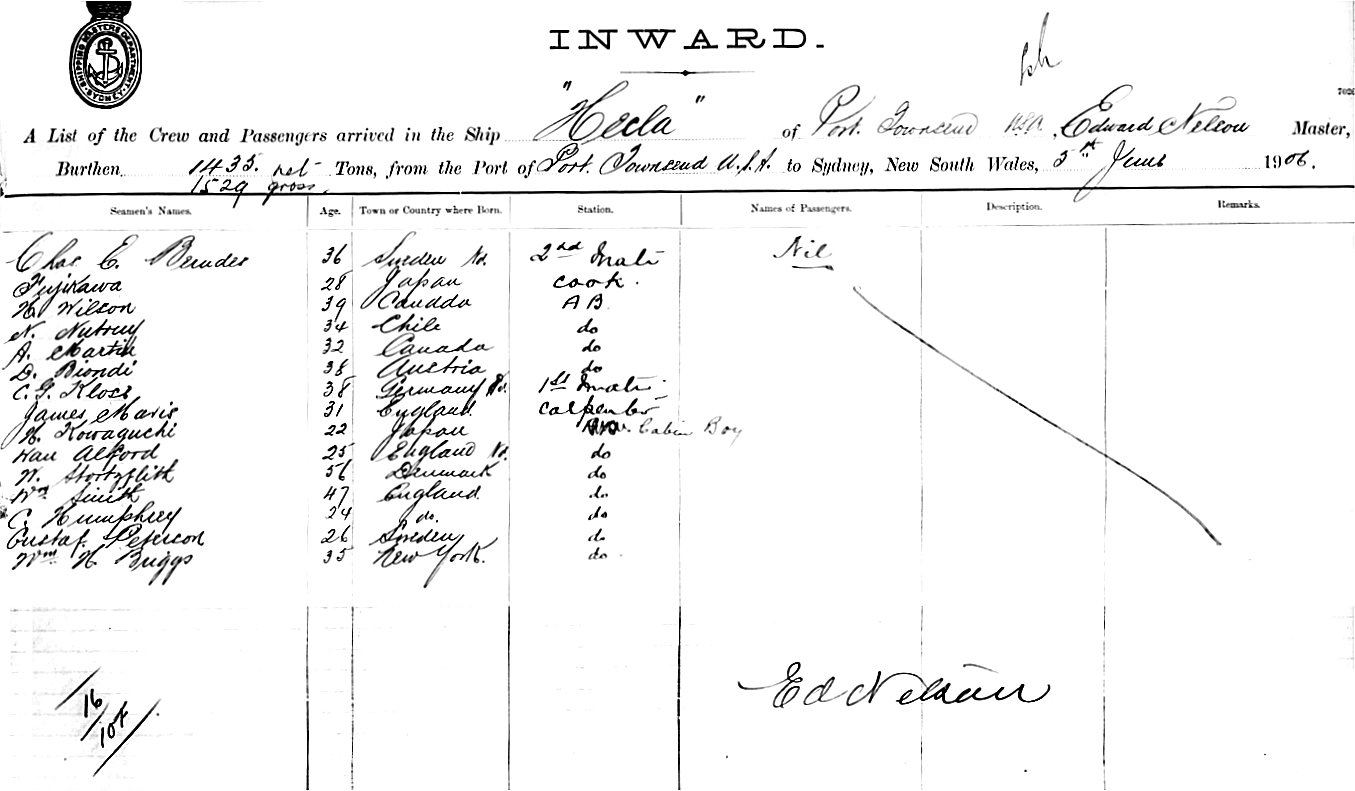 SHIPPING MASTERS DEPARTMENT SYDNEY
INWARD.
A List of the Crew and Passengers arrived in the Ship "Hecla" of Port Townsend USA Edward Nelson Master,
Burthen 1435. net Tons, from the Port of Port Townsend U.S.A to Sydney, New South Wales, 5th June 1906.
1529 gross.
Seamen's Names. Age. Town or Country where Born. Station. Names of Passengers. Description. Remarks.
Chas E. 36 Sweden 2nd Mate Nil
Fujikawa 28 Japan cook.
H. Wilson 39 Canada AB.
N. 34 Chile do
A. Martin 32 Canada do
D. Biondi 38 Austria do
C. G. Klose 38 Germany 1st mate
James Maris 31 England Carpenter
K. Kowaguchi 22 Japan Cabin Boy
Alford 25 England do
W. 56 Denmark do
Wm Smith 47 England do
C. Humphrey 24 do. do
Gustaf Peterson 26 Sweden do
Wm H Briggs 35 New York. do
Ed Nelson
16